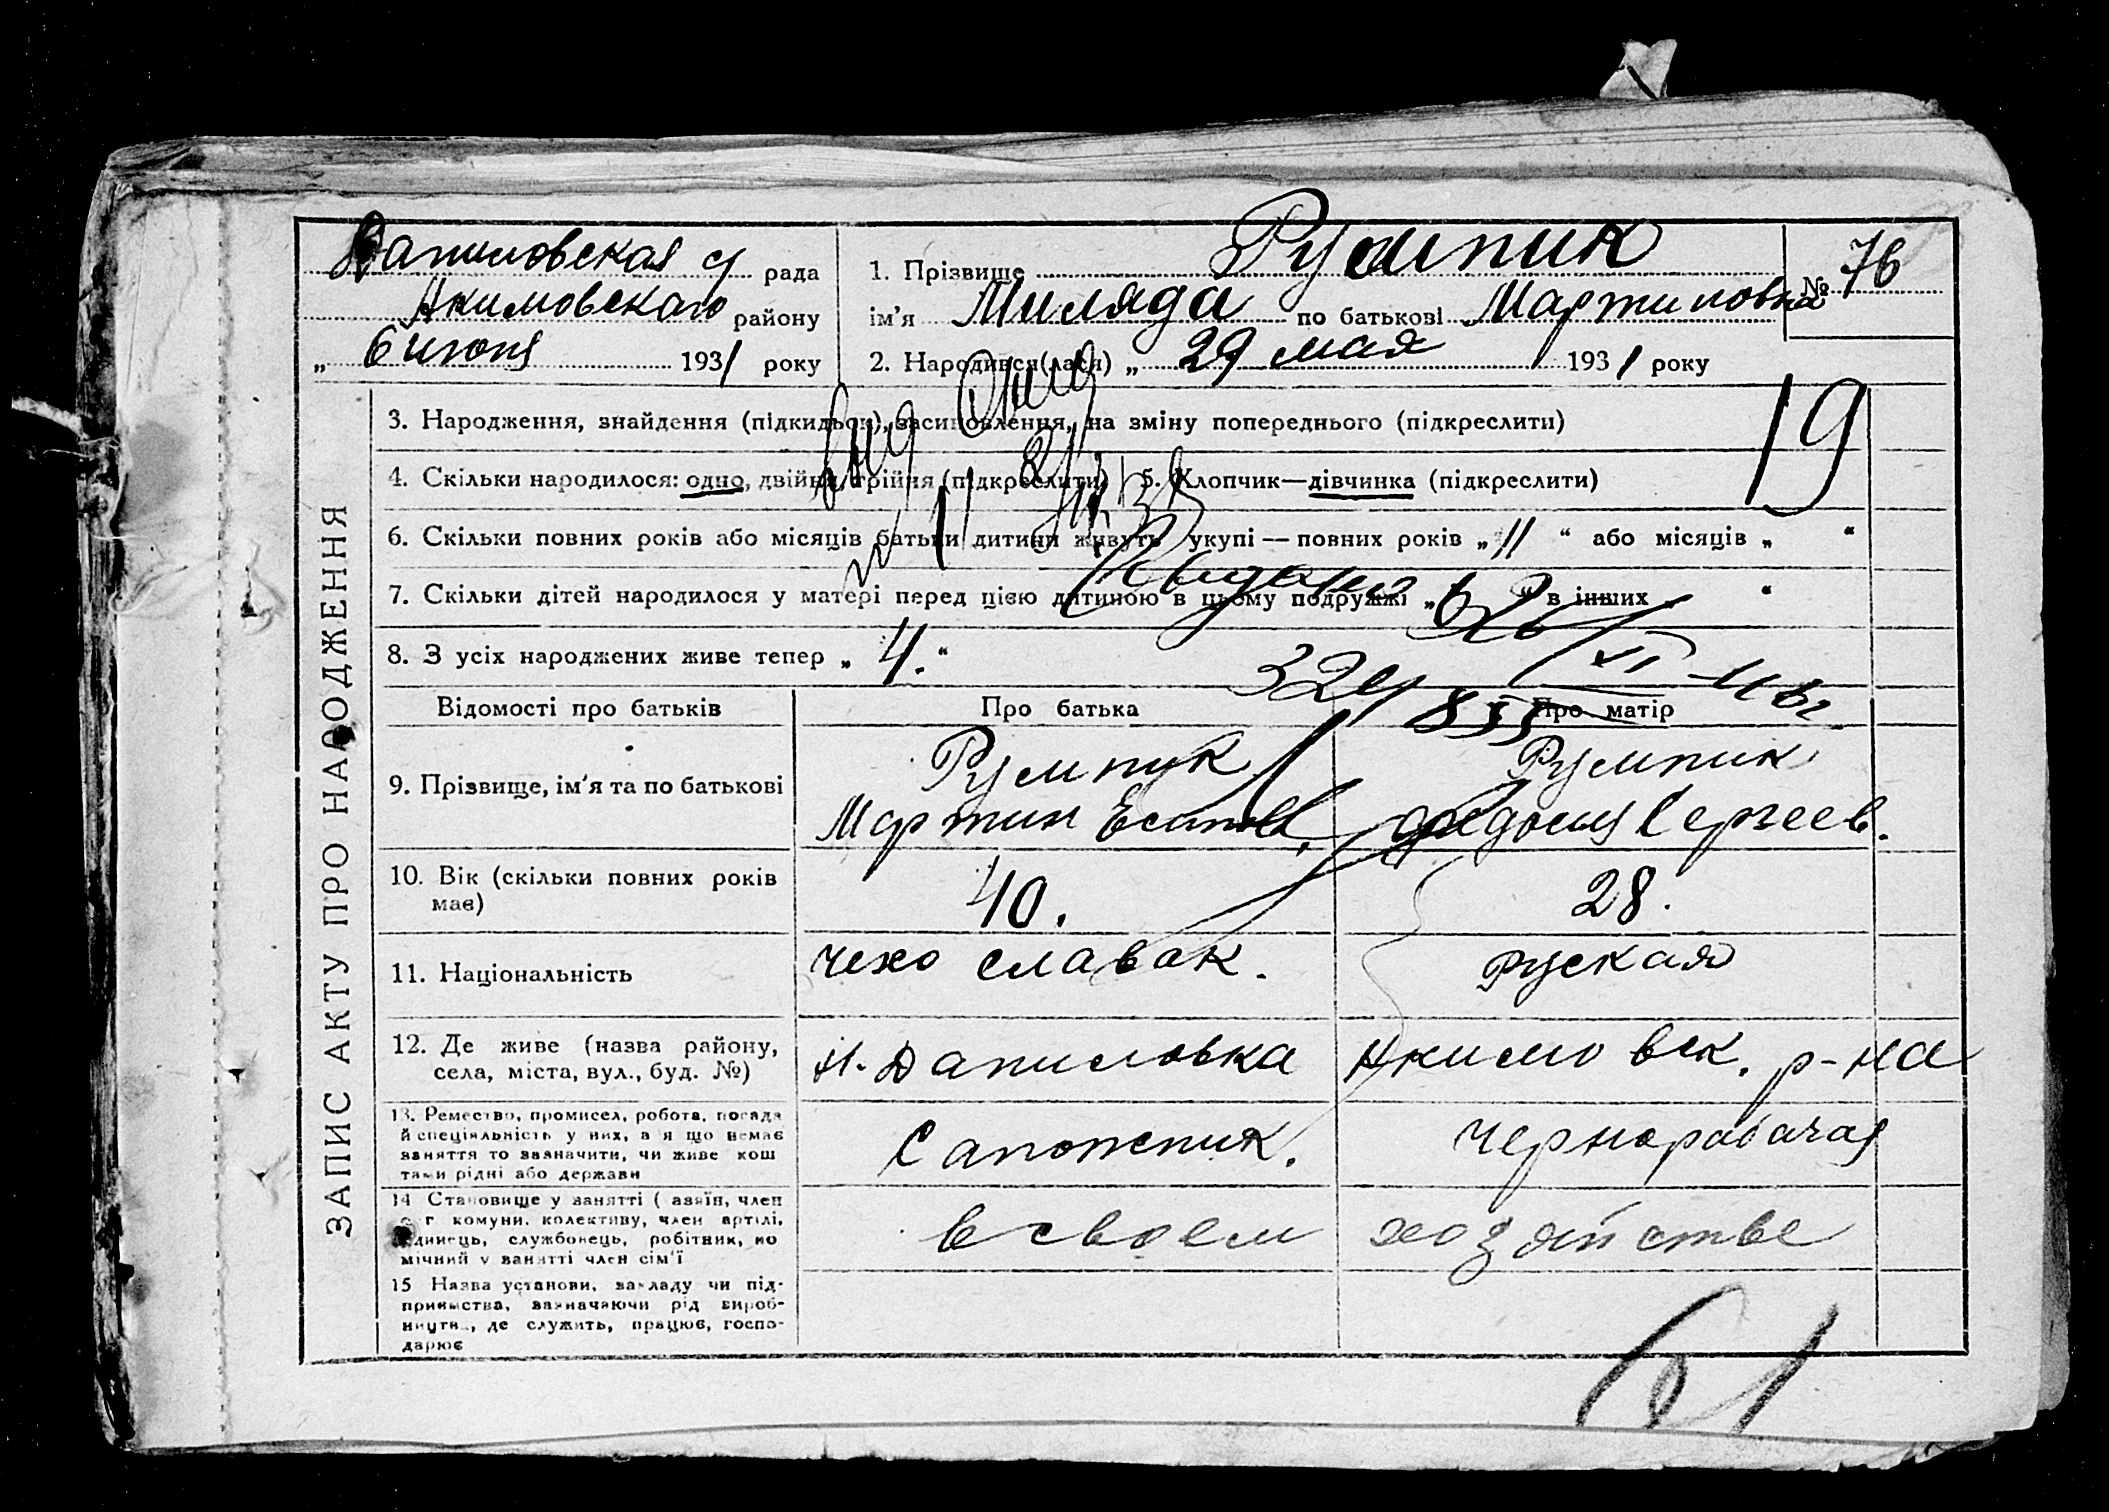 Даниловская с/ рада
Акимовского району
„ 6 июня 1931 року
1. Прізвище Румпик
№ 76
ім'я Миляда по батькові Мартиновна
2. Народився(лася) „ 29 мая 1931 року
ЗАПИС АКТУ ПРО НАРОДЖЕННЯ
3. Народження, знайдення (підкидьок), засиновлення, на зміну попереднього (підкреслити)
19
4. Скільки народилося: одно, двійня, трійня (підкреслити) 5. Хлопчик—дівчинка (підкреслити)
6. Скільки повних років або місяців батьки дитини живуть укупі — повних років „ 11 “ або місяців „ “
7. Скільки дітей народилося у матері перед цією дитиною в цьому подружжі „ “ в інших „ “
8. З усіх народжених живе тепер „ 4. “
Відомості про батьків
Про батька
Про матір
9. Прізвище, ім'я та по батькові
Румпик
Мартин
Румпик
Сергеев.
10. Вік (скільки повних років має)
40.
28.
11. Національність
чехославак.
руская
12. Де живе (назва району, села, міста, вул., буд. №)
Н. Даниловка
Акимовск. р-на
13. Ремество, промисел, робота, посада
й спеціяльність у них, а я що немає
заняття то зазначити, чи живе кош
тами рідні або держави
Сапожник.
Чернорабачая
14 Становище у занятті (
комуни, колективу, член артілі,
службовець, робітник, по
мічний у занятті член сім'ї
в своем
хозяйстве
15 Назва установи, закладу чи під-
приємства, зазначаючи рід вироб-
ництва, де служить, працює, госпо-
дарює
61